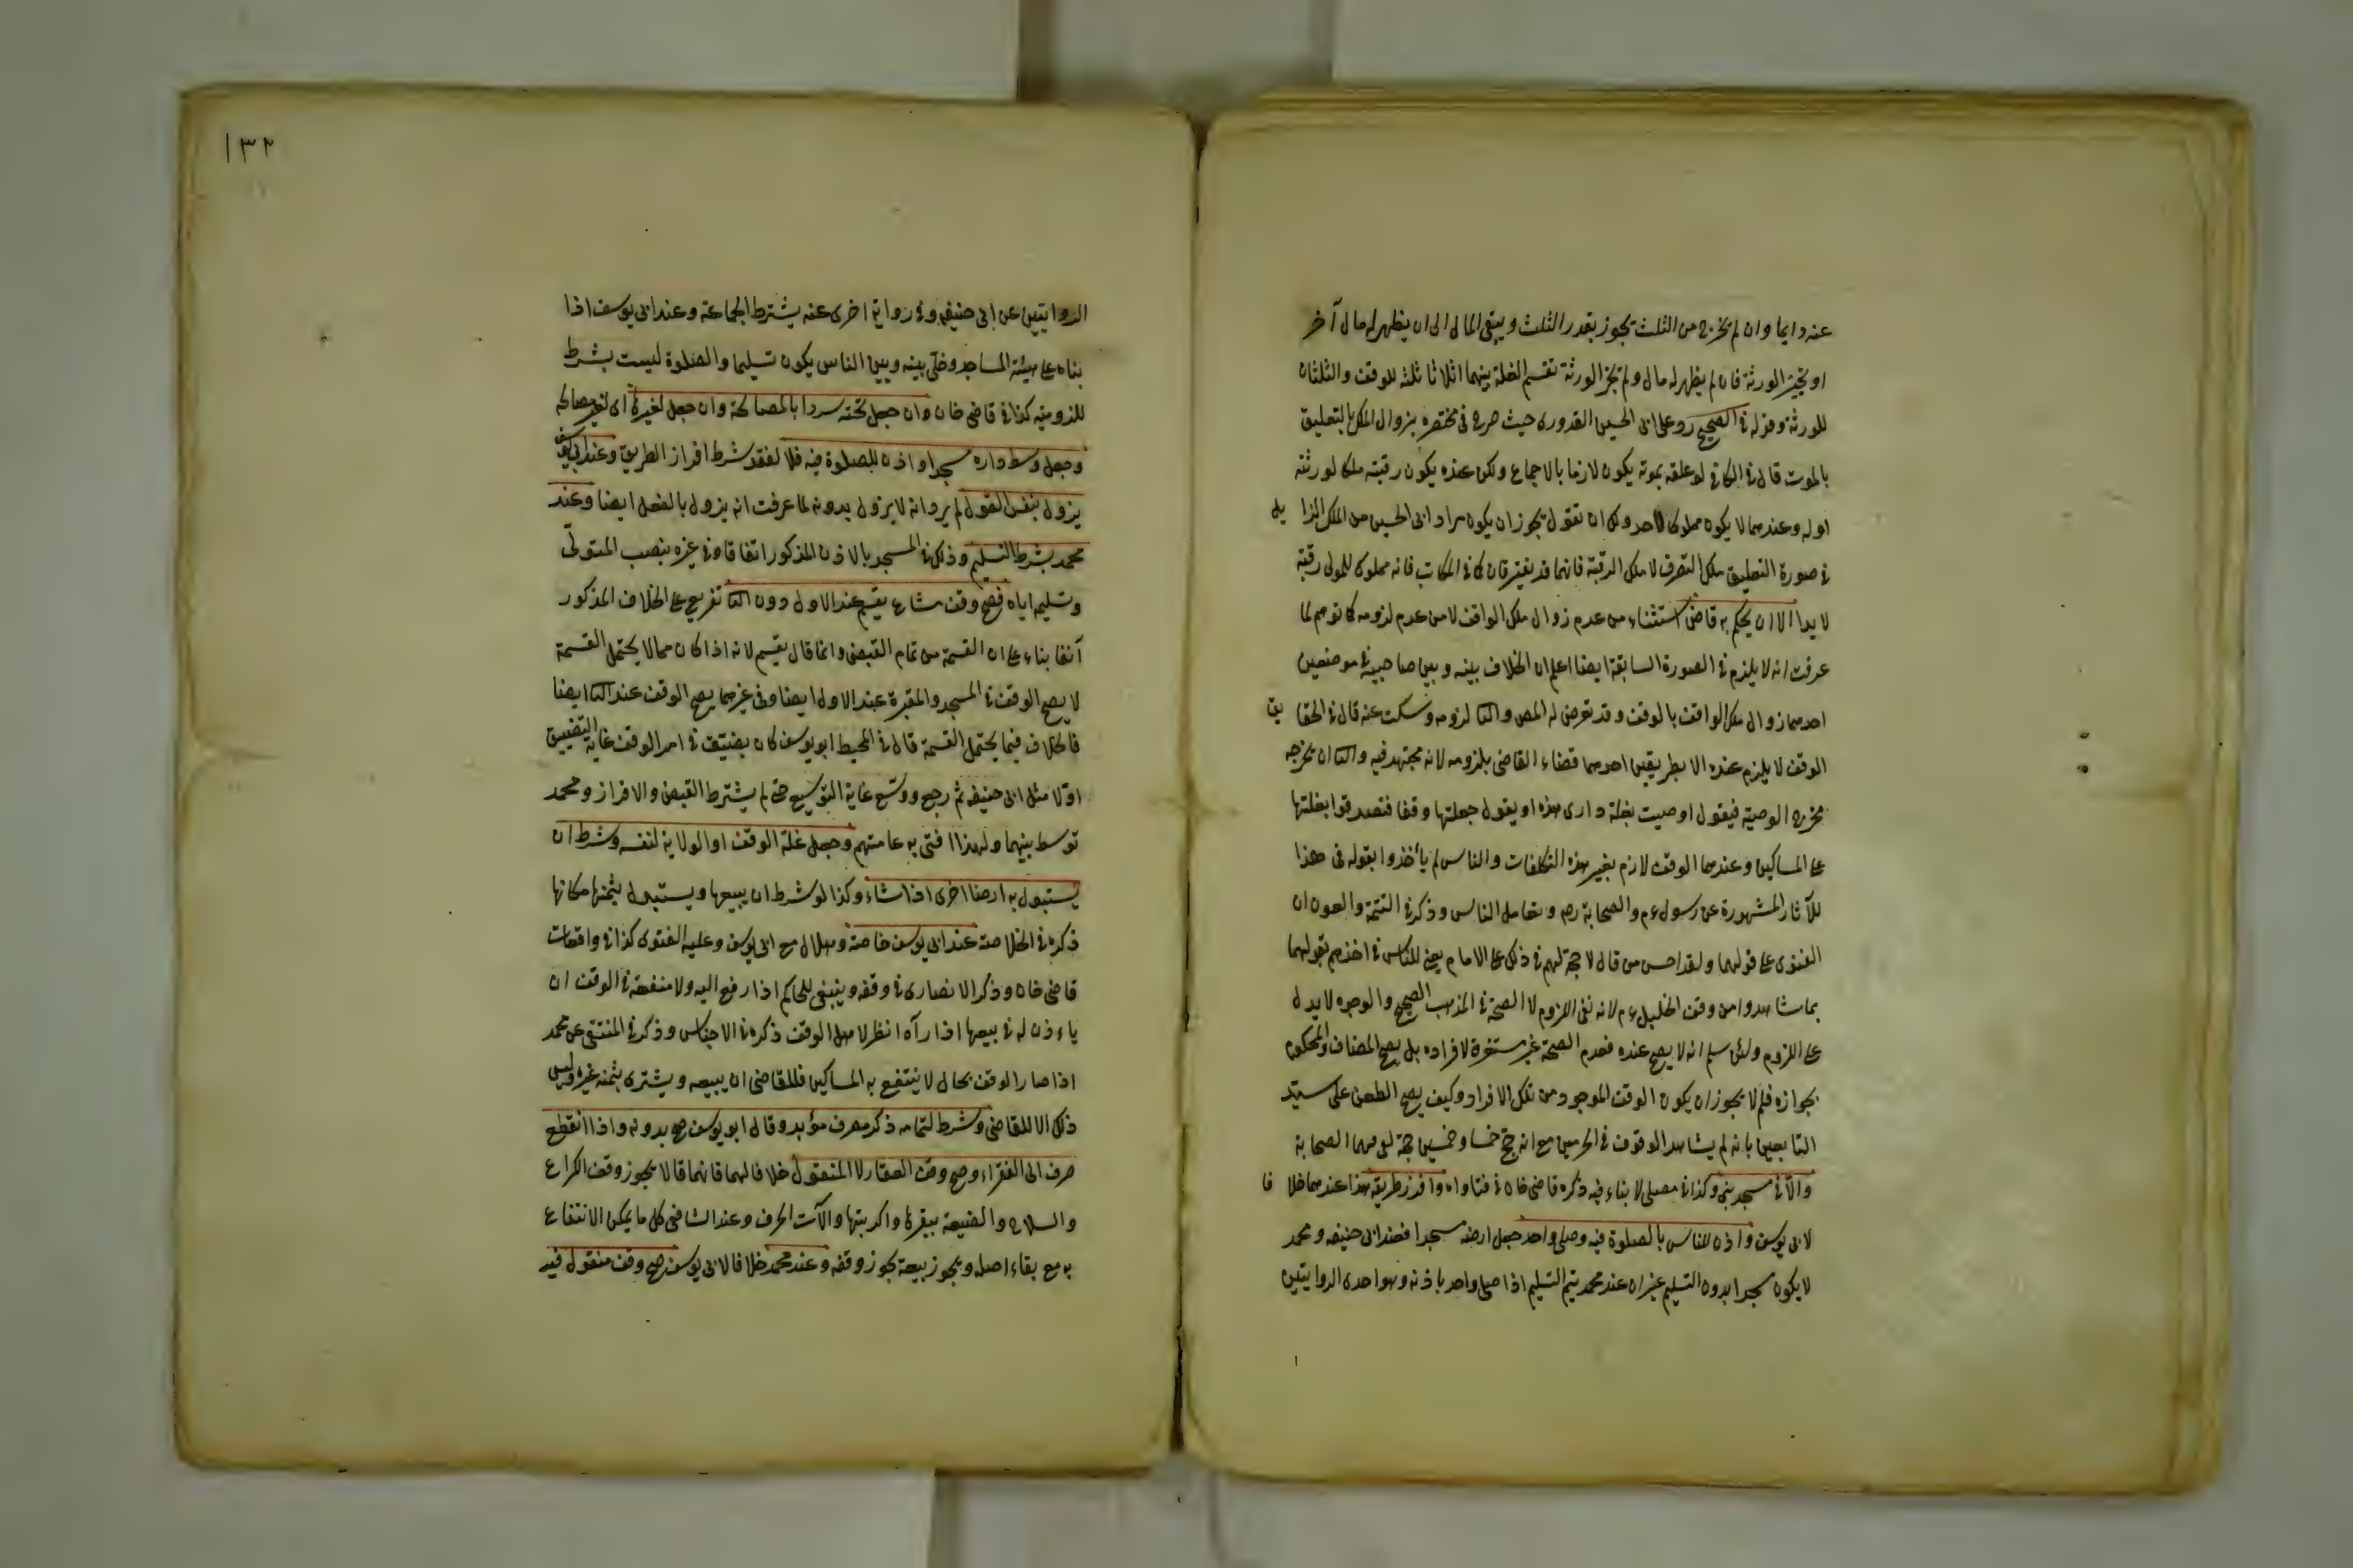 عنه دايما وان لم يخرج من الثلث يجوز بقدر الثلث ويبقى المال الى ان يظهر له مال آخر
او تجيز الورثة فان لم يظهر له مال ولم تجز الورثة تقسم الغلة بينهما اثلاثا ثلثه للوقف والثلثان
للورثة وقوله في الصحيح رد على ابى الحسين القدورى حيث صرح فى مختصره بزوال الملك بالتعليق
بالموت قال في الكافي لو علقه بموته يكون لازما بالاجماع ولكن عنده يكون رقبته ملكا لورثته
اوله وعندهما لا يكون مملوكا لاحد ولك ان تقول يجوز ان يكون مراد ابى الحسين من الملك الزايل
في صورة التعليق ملك التصرف لا ملك الرقبة فانهما قد يفترقان كما في المكاتب فانه مملوك للمولى رقبة
لا يدا الا ان يحكم به قاض استثناء من عدم زوال ملك الواقف لا من عدم لزومه كما توهم لما
عرفت انه لا يلزم في الصورة السابقة ايضا اعلم ان الخلاف بينه وبين صاحبيه في موضعين
احدهما زوال ملك الواقف بالوقف وقد تعرض له المص والثا لزومه وسكت عنه قال في الحقايق
الوقف لا يلزم عنده الا بطريقين احدهما قضاء القاضى بلزومه لانه مجتهد فيه والثا ان يخرجه
مخرج الوصية فيقول اوصيت بغلة دارى هذه او يقول جعلتها وقفا فتصدقوا بغلتها
على المساكين وعندهما الوقف لازم بغير هذه التكلفات والناس لم يأخذوا بقوله فى هذا
للآثار المشهورة عن رسول عم والصحابة رض وتعامل الناس وذكر في التتمة والعون ان
الفتوى على قولهما ولقد احسن من قال لا حجة لهم في ذلك على الامام يعنى للناس في اخذهم بقولهما
بما شاهدوا من وقف الخليل عم لانه نفى اللزوم لا الصحة في المذهب الصحيح والوجوه لا يدل
على اللزوم ولئن سلم انه لا يصح عنده فعدم الصحة غير مستغرقة لافراده بل يصح المضاف والمحكوم
بجوازه فلم لا يجوز ان يكون الوقف الموجود من تلك الافراد وكيف يصح الطعن على سيد
التابعين بانه لم يشاهد الوقوف في الحرمين مع انه حج خمسا وخمسين حجة لقى فيها الصحابة
والا في مسجد بنى وكذا في مصلى لا بناء فيه ذكره قاضى خان في فتاواه وافرز طريقه هذا عندهما خلافا
لابى يوسف واذن للناس بالصلوة فيه وصلى واحد جعل ارضه مسجدا فعند ابى حنيفه ومحمد
لا يكون مسجدا بدون التسليم غير ان عند محمد يتم التسليم اذا صلى واحد باذنه وهو احدى الروايتين
١٣٢
الروايتين عن ابى حنيفه وفي رواية اخرى عنه يشترط الجماعة وعند ابى يوسف اذا
بناه على هيئة المساجد وخلى بينه وبين الناس يكون تسليما والصلوة ليست بشرط
للزومه كذا في قاضى خان وان جعل تحته سردابا لمصالحه وان جعل لغيرها اى لغير مصالحه
وجعل وسط داره مسجدا واذن للصلوة فيه فلا لفقد شرط افراز الطريق وعند ابى يوسف
يزول بنفس القول لم يرد انه لا يزول بدونه لما عرفت انه يزول بالفعل ايضا وعند
محمد بشرط التسليم وذلك في المسجد بالاذن المذكور اتفاقا وفي غيره بنصب المتولى
وتسليمه اياه فصح وقف مشاع يقسم عند الاول دون الثا تفريع على الخلاف المذكور
آنفا بناء على ان القسمة من تمام القبض وانما قال يقسم لانه اذا كان مما لا يحتمل القسمة
لا يصح الوقف في المسجد والمقبرة عند الاول ايضا وفى غيرهما يصح الوقف عند الثا ايضا
فالخلاف فيما يحتمل القسمة قال في المحيط ابو يوسف كان يضيق في امر الوقف غاية التضييق
اولا مثل ابى حنيفه ثم رجع ووسع غاية التوسيع حتى لم يشترط القبض والافراز ومحمد
توسط بينهما ولهذا افتى به عامتهم وجعل غلة الوقف او الولاية لنفسه وشرط ان
يستبدل به ارضا اخرى اذا شاء وكذا لو شرط ان يبيعها ويستبدل بثمنها مكانها
ذكره في الخلاصة عند ابى يوسف خاصة وهلال مع ابى يوسف وعليه الفتوى كذا في واقعات
قاضى خان وذكر الانصارى في وقفه وينبغى للحاكم اذا رفع اليه ولا منفعة في الوقف ان
ياءذن له في بيعها اذا رآه انظر لاهل الوقف ذكره في الاجناس وذكر في المنتقى عن محمد
اذا صار الوقف بحال لا ينتفع به المساكين فللقاضى ان يبيعه ويشترى بثمنه غيره وليس
ذلك الا للقاضى وشرط لتمامه ذكر مصرف مؤبد وقال ابو يوسف صح بدونه واذا انقطع
صرف الى الفقراء وصح وقف العقار لا المنقول خلافا لهما فانهما قالا يجوز وقف الكراع
والسلاح والضيعة ببقرها واكرتها والآت الحرف وعند الشافعى كل ما يمكن الانتفاع
به مع بقاء اصله ويجوز بيعه يجوز وقفه وعند محمد خلافا لابى يوسف صح وقف منقول فيه